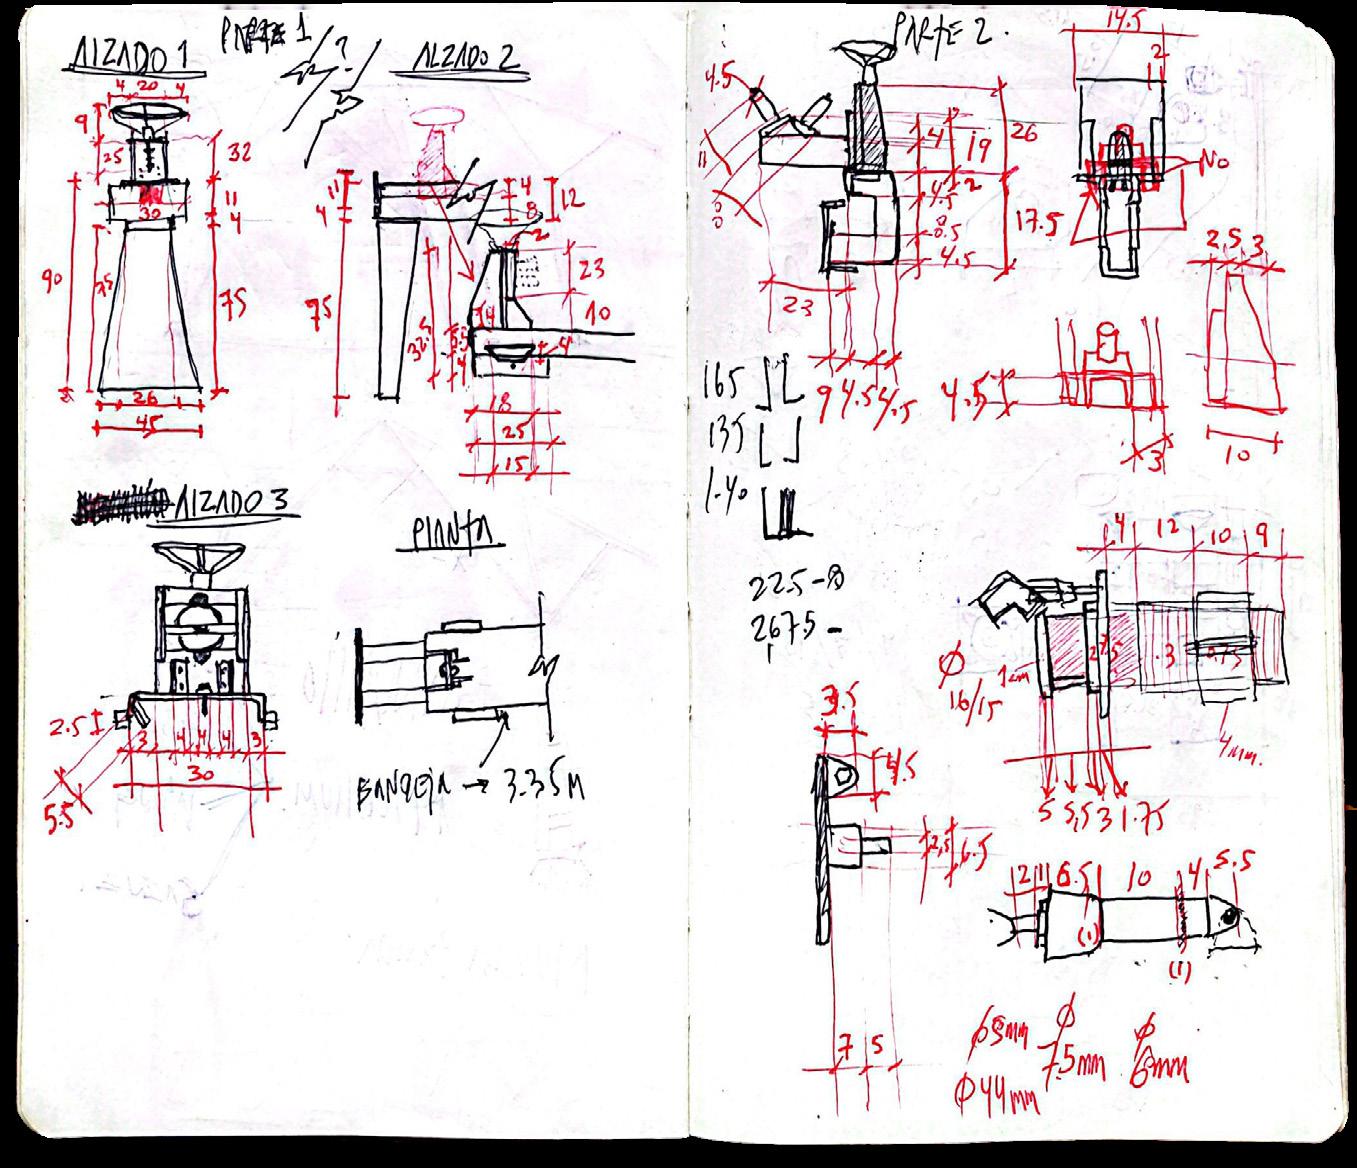 PARTE 1
ALZADO 1
?
ALZADO 2
4 20 4
9
25
32
11
30
4
90
75
75
26
45
11
4
4
8
12
2
23
10
75
32.5
4
4
18
25
15
ALZADO 3
2.5
3 4 4 4 3
30
5.5
PLANTA
BANDEJA → 3.35M
PARTE 2.
14.5
2
4.5
11
4
19
26
2
4.5
8.5
4.5
17.5
No
23
9 4.5 4.5
2,5 3
10
4.5
3
165
135
1-40
22.5-8
267.5 -
4 12 10 9
Ø
16/15
1cm
3
4mm.
5 5,5 3 1.75
3.5
4.5
2,5
6.5
7 5
2 1 6.5 10 4 5.5
(1)
(1)
Ø
75mm
Ø
6mm
Ø44mm